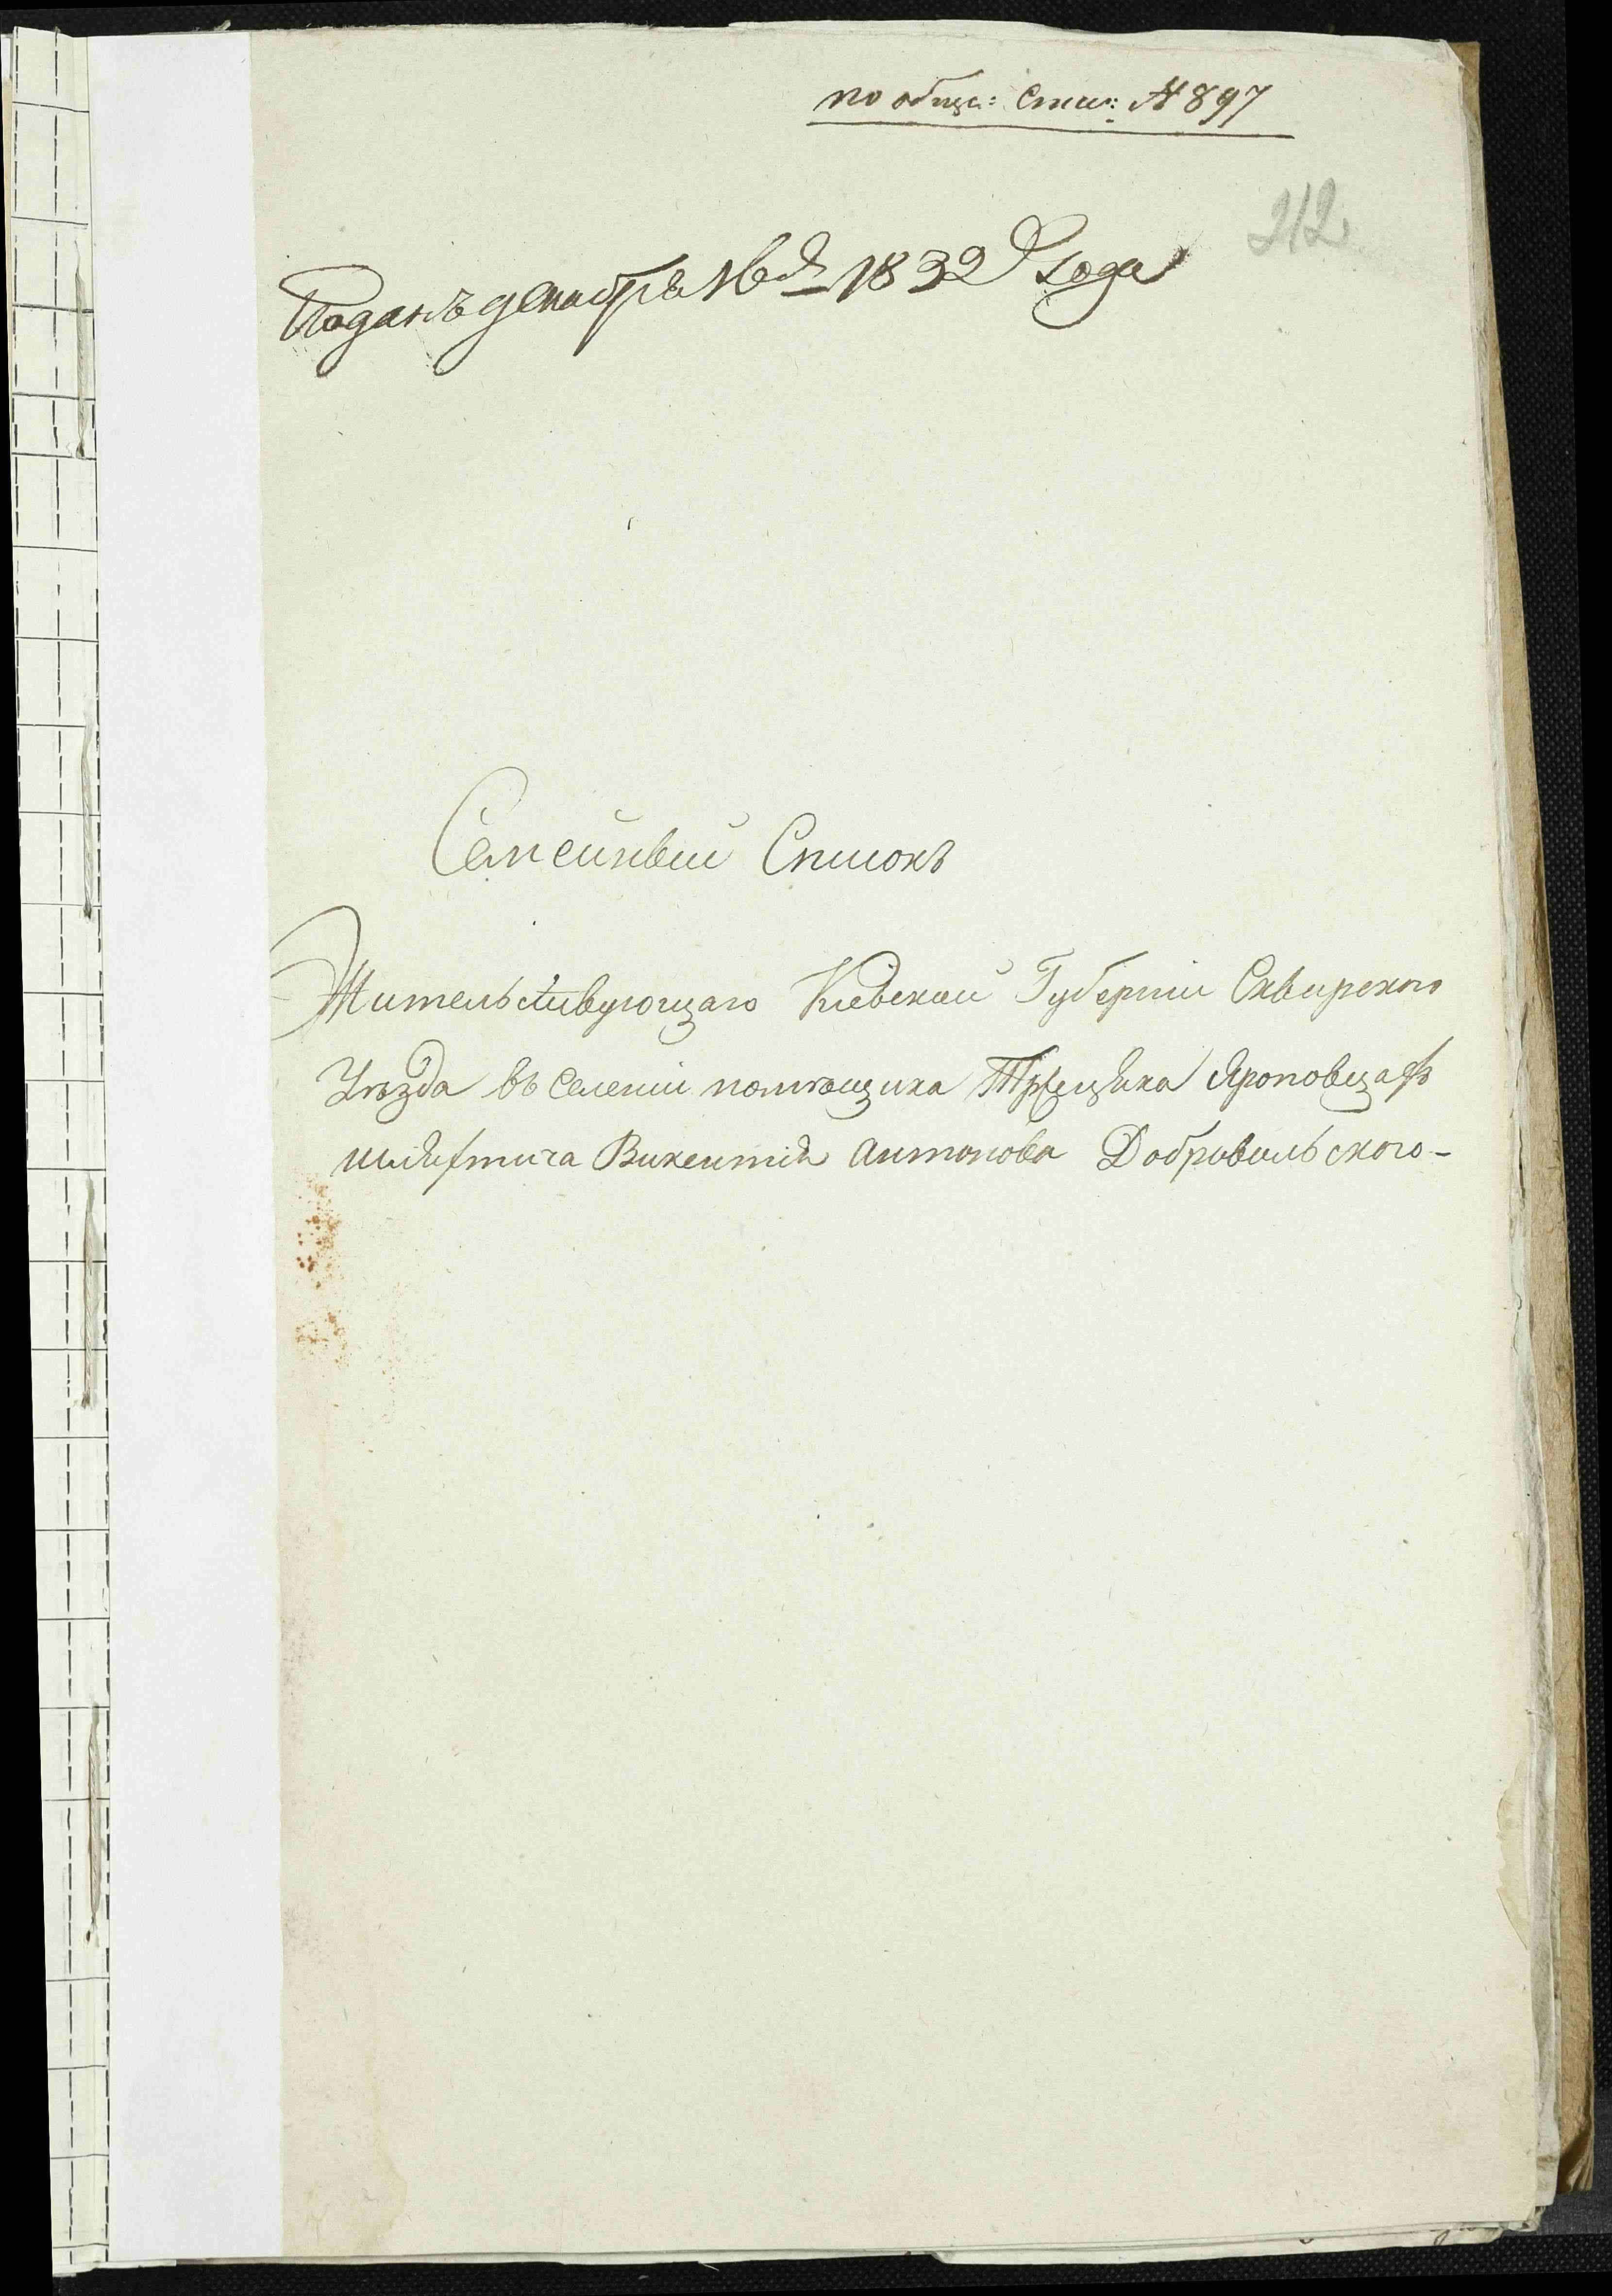 по обще: спис: № 897
212
Поданъ декабря 16 д 1832 Года
Семейный Списокъ
Жительствующаго Кіевской Губерніи Сквирского
Уѣзда въ селеніи помѣщика Яроповцахъ
шляхтича Викентія Антонова Добровольского-